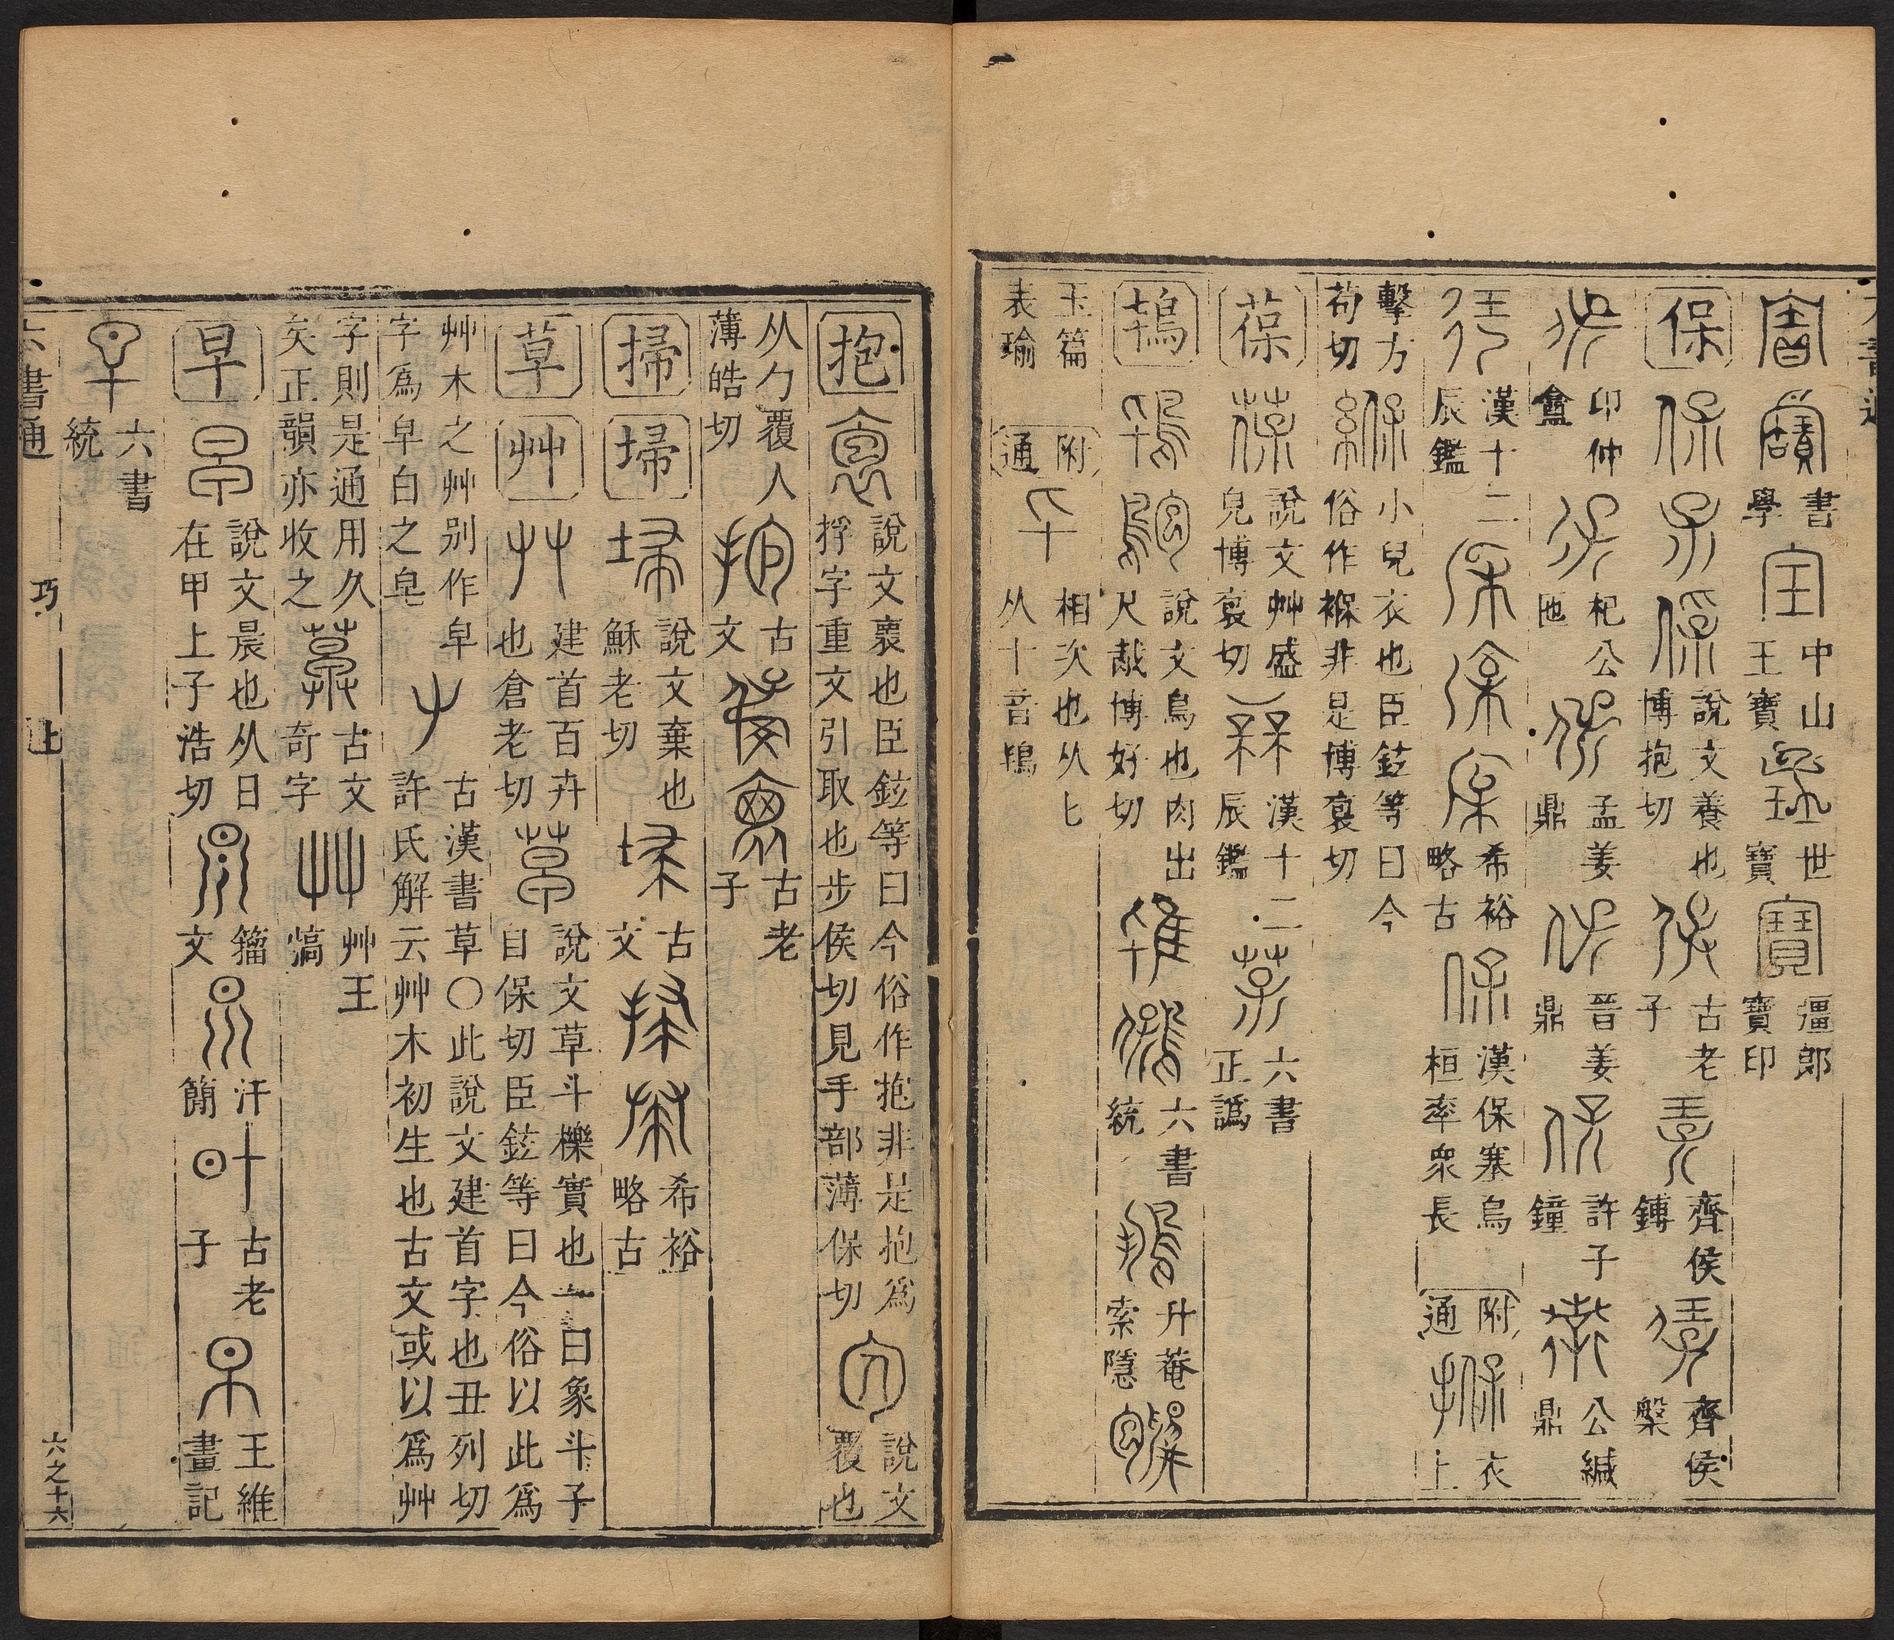 書學
中山王寶
世寶
彊郎寶印
保
說文養也博抱切
古老子
齊侯鎛
齊侯槃
印仲盦
杞公匜
孟姜鼎
晉姜鼎
許子鐘
公緘鼎
漢十二辰鑑
希裕略古
漢保塞烏桓率衆長
附通
衣上
擊方苟切
小兒衣也臣鉉等曰今俗作褓非是博裒切
葆
說文艸盛皃博裒切
漢十二辰鑑
六書正譌
鴇
說文鳥也肉出尺胾博好切
六書統
升菴索隱
玉篇
附通
相次也从匕从十音鴇
抱
說文褱也臣鉉等曰今俗作抱非是抱爲捊字重文引取也步侯切見手部薄保切
說文覆也
从勹覆人薄皓切
古文
古老子
掃
埽
說文棄也穌老切
古文
希裕略古
草
艸
建首百卉也倉老切
說文草斗櫟實也一曰象斗子自保切臣鉉等曰今俗以此爲
艸木之艸别作皁字爲皁白之皂
古漢書草〇此說文建首字也丑列切許氏解云艸木初生也古文或以爲艸
字則是通用久矣正韻亦收之
古文奇字
艸王
早
說文晨也从日在甲上子浩切
籀文
汗簡
古老子
王維畫記
六書統
六書通
巧
上
六之十六